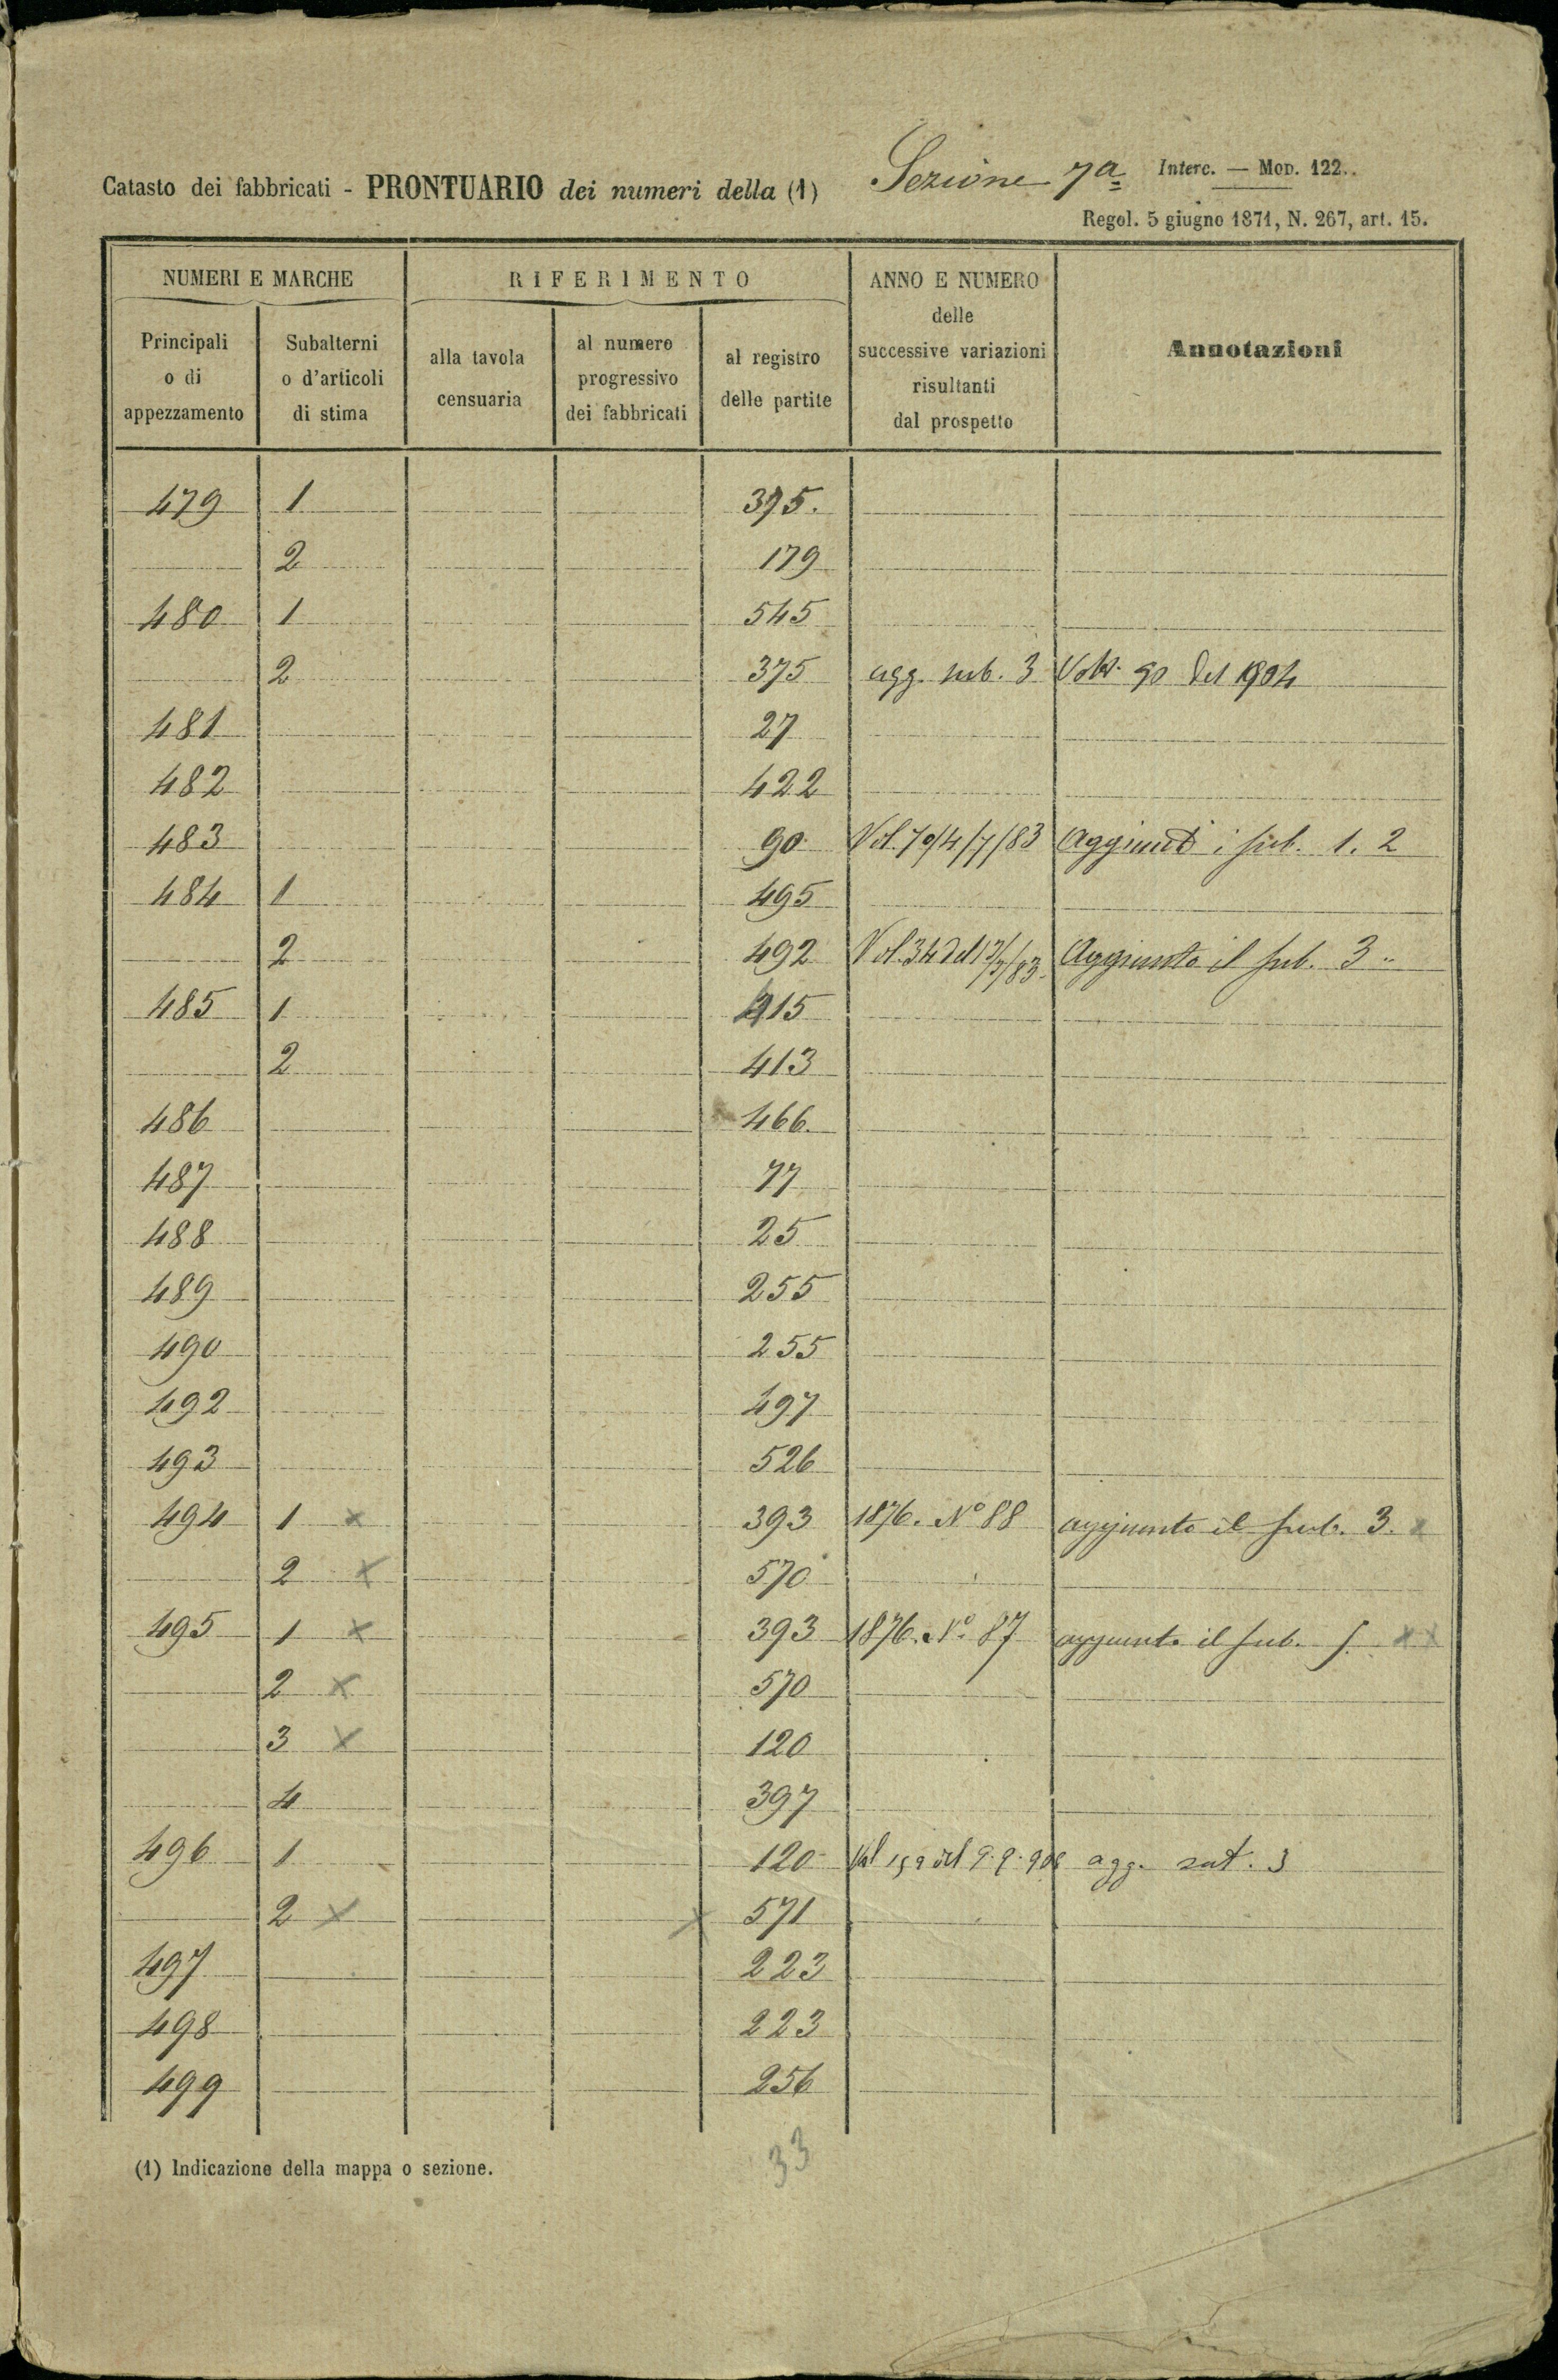 Catasto dei fabbricati - PRONTUARIO dei numeri della (1) Sezione 7a Interc. — Mod. 122.
Regol. 5 giugno 1871, N. 267, art. 15.
NUMERI E MARCHE RIFERIMENTO ANNO E NUMERO delle successive variazioni risultanti dal prospetto Annotazioni
Principali o di appezzamento Subalterni o d'articoli di stima alla tavola censuaria al numero progressivo dei fabbricati al registro delle partite
479 1 395.
2 179
480 1 545
2 375 agg. sub. 3 90 del 1904
481 27
482 422
483 90 Vol. 79/4/7/83 Aggiunti i sub. 1. 2
484 1 495
2 492 Vol. 34 del 13/7/83. Aggiunto il sub. 3
485 1 415
2 413
486 466.
487 77
488 25
489 255
490 255
492 497
493 526
494 1 x 393 1876. N° 88 aggiunto il sub. 3. x
2 x 570
495 1 x 393 1876. N° 87 aggiunto il sub. 5. x x
2 x 570
3 x 120
4 397
496 1 120 Vol 159 del 9.9.908 agg. sut. 3
2 x x 571
497 223
498 223
499 256
(1) Indicazione della mappa o sezione.
33